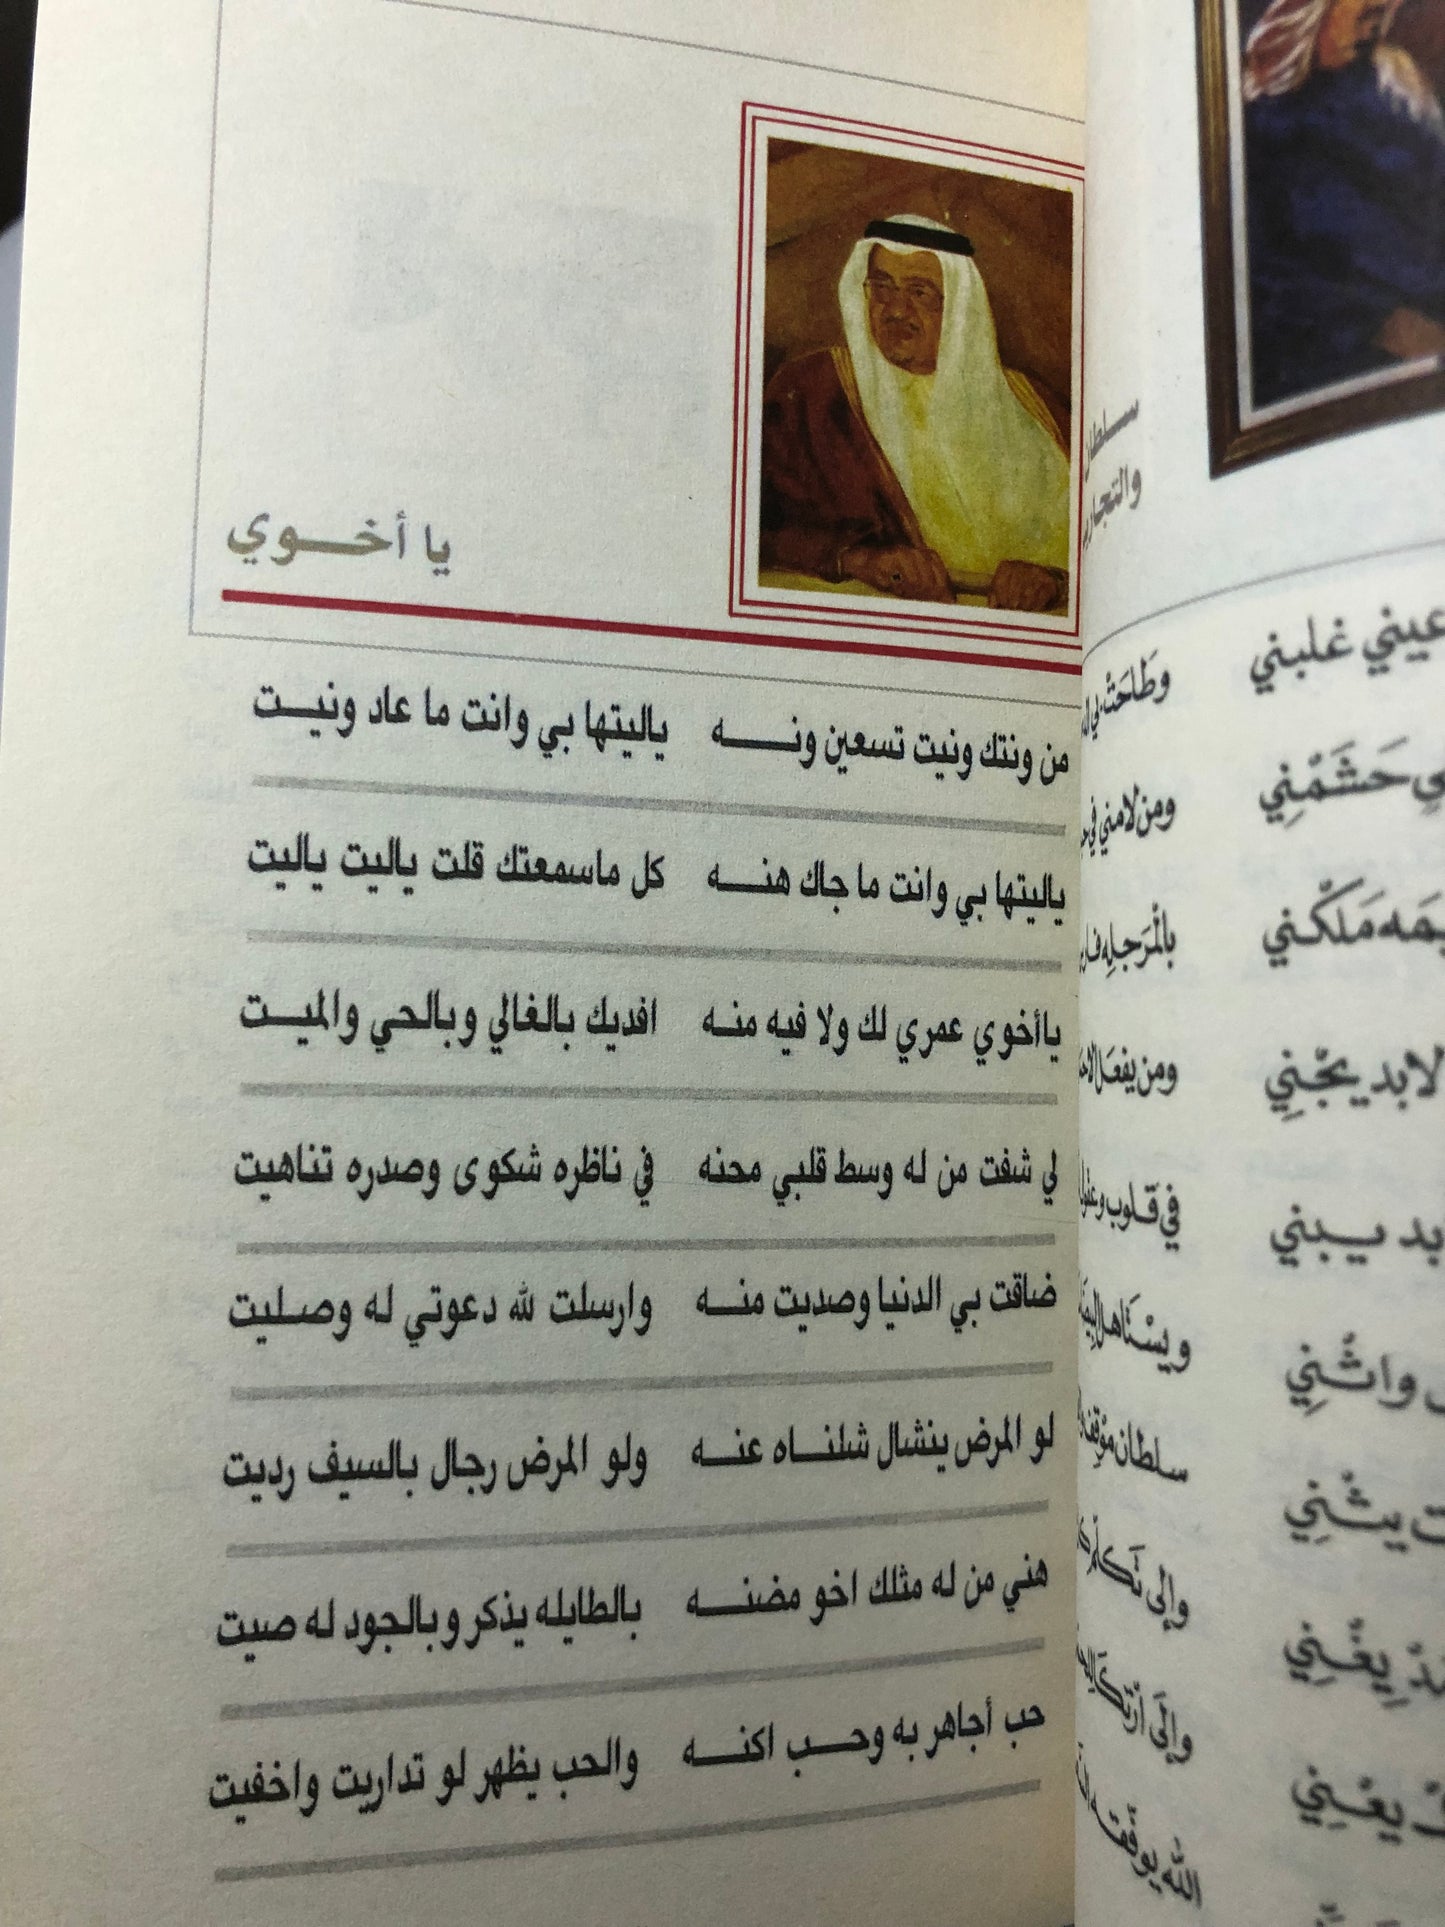 يا أخوي
من ونتك ونيت تسعين ونه ياليتها بي وانت ما عاد ونيت
ياليتها بي وانت ما جاك هنه كل ماسمعتك قلت ياليت ياليت
ياأخوي عمري لك ولا فيه منه افديك بالغالي وبالحي والميت
لي شفت من له وسط قلبي محنه في ناظره شكوى وصدره تناهيت
ضاقت بي الدنيا وصديت منه وارسلت لله دعوتي له وصليت
لو المرض ينشال شلناه عنه ولو المرض رجال بالسيف رديت
هني من له مثلك اخو مضنه بالطايله يذكر وبالجود له صيت
حب أجاهر به وحب اكنه والحب يظهر لو تداريت واخفيت
سلطان
والتجارب
وَطلَحَتْ لي
عيني غلبني
ومن لامني في
حَشَمْنِي
بالْمَرَجلِه
مَلَكْني
ومن يفعَل
لابد يجْنِي
في قلوب
يبني
ويسْتَاهل
واثْنِي
سلطان موْقِف
يثْنِي
وإلى تَكلَّم
يغْنِي
وإلَى
يعْنِي
الله يوفّقه